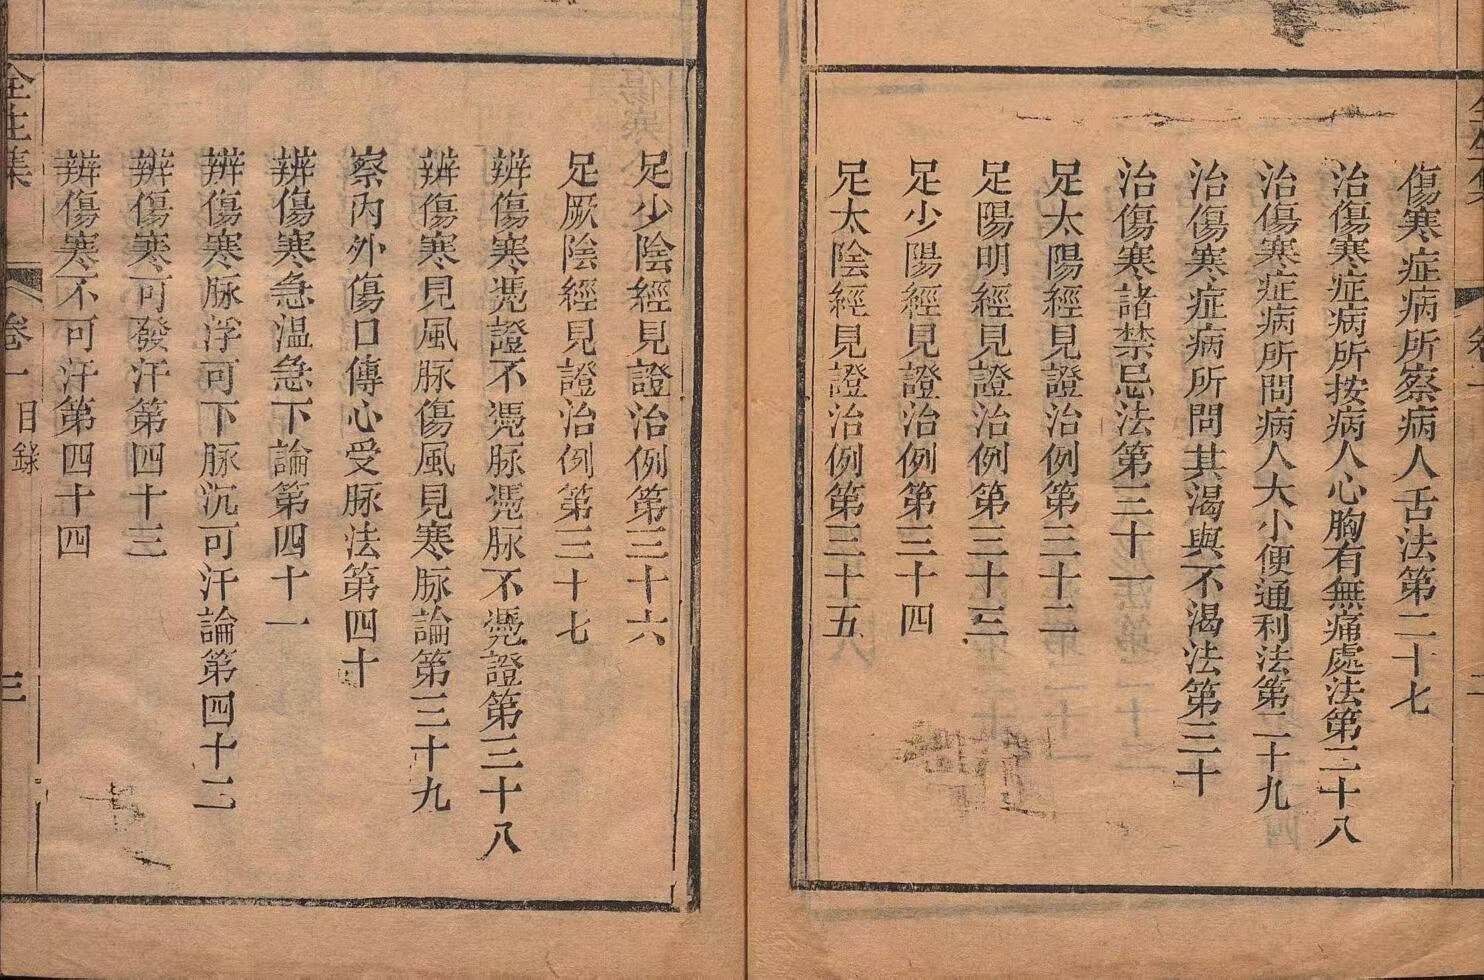 傷寒症病所察病人舌法第二十七
治傷寒症病所按病人心胸有無痛處法第二十八
治傷寒症病所問病人大小便通利法第二十九
治傷寒症病所問其渴與不渴法第三十
治傷寒諸禁忌法第三十一
足太陽經見證治例第三十二
足陽明經見證治例第三十三
足少陽經見證治例第三十四
足太陰經見證治例第三十五
足少陰經見證治例第三十六
足厥陰經見證治例第三十七
辨傷寒慿證不慿脉慿脉不慿證第三十八
辨傷寒見風脉傷風見寒脉論第三十九
察內外傷口傳心受脉法第四十
辨傷寒急温急下論第四十一
辨傷寒脉浮可下脉沉可汗論第四十二
辨傷寒可發汗第四十三
辨傷寒不可汗第四十四
全生集 卷一 目錄 三